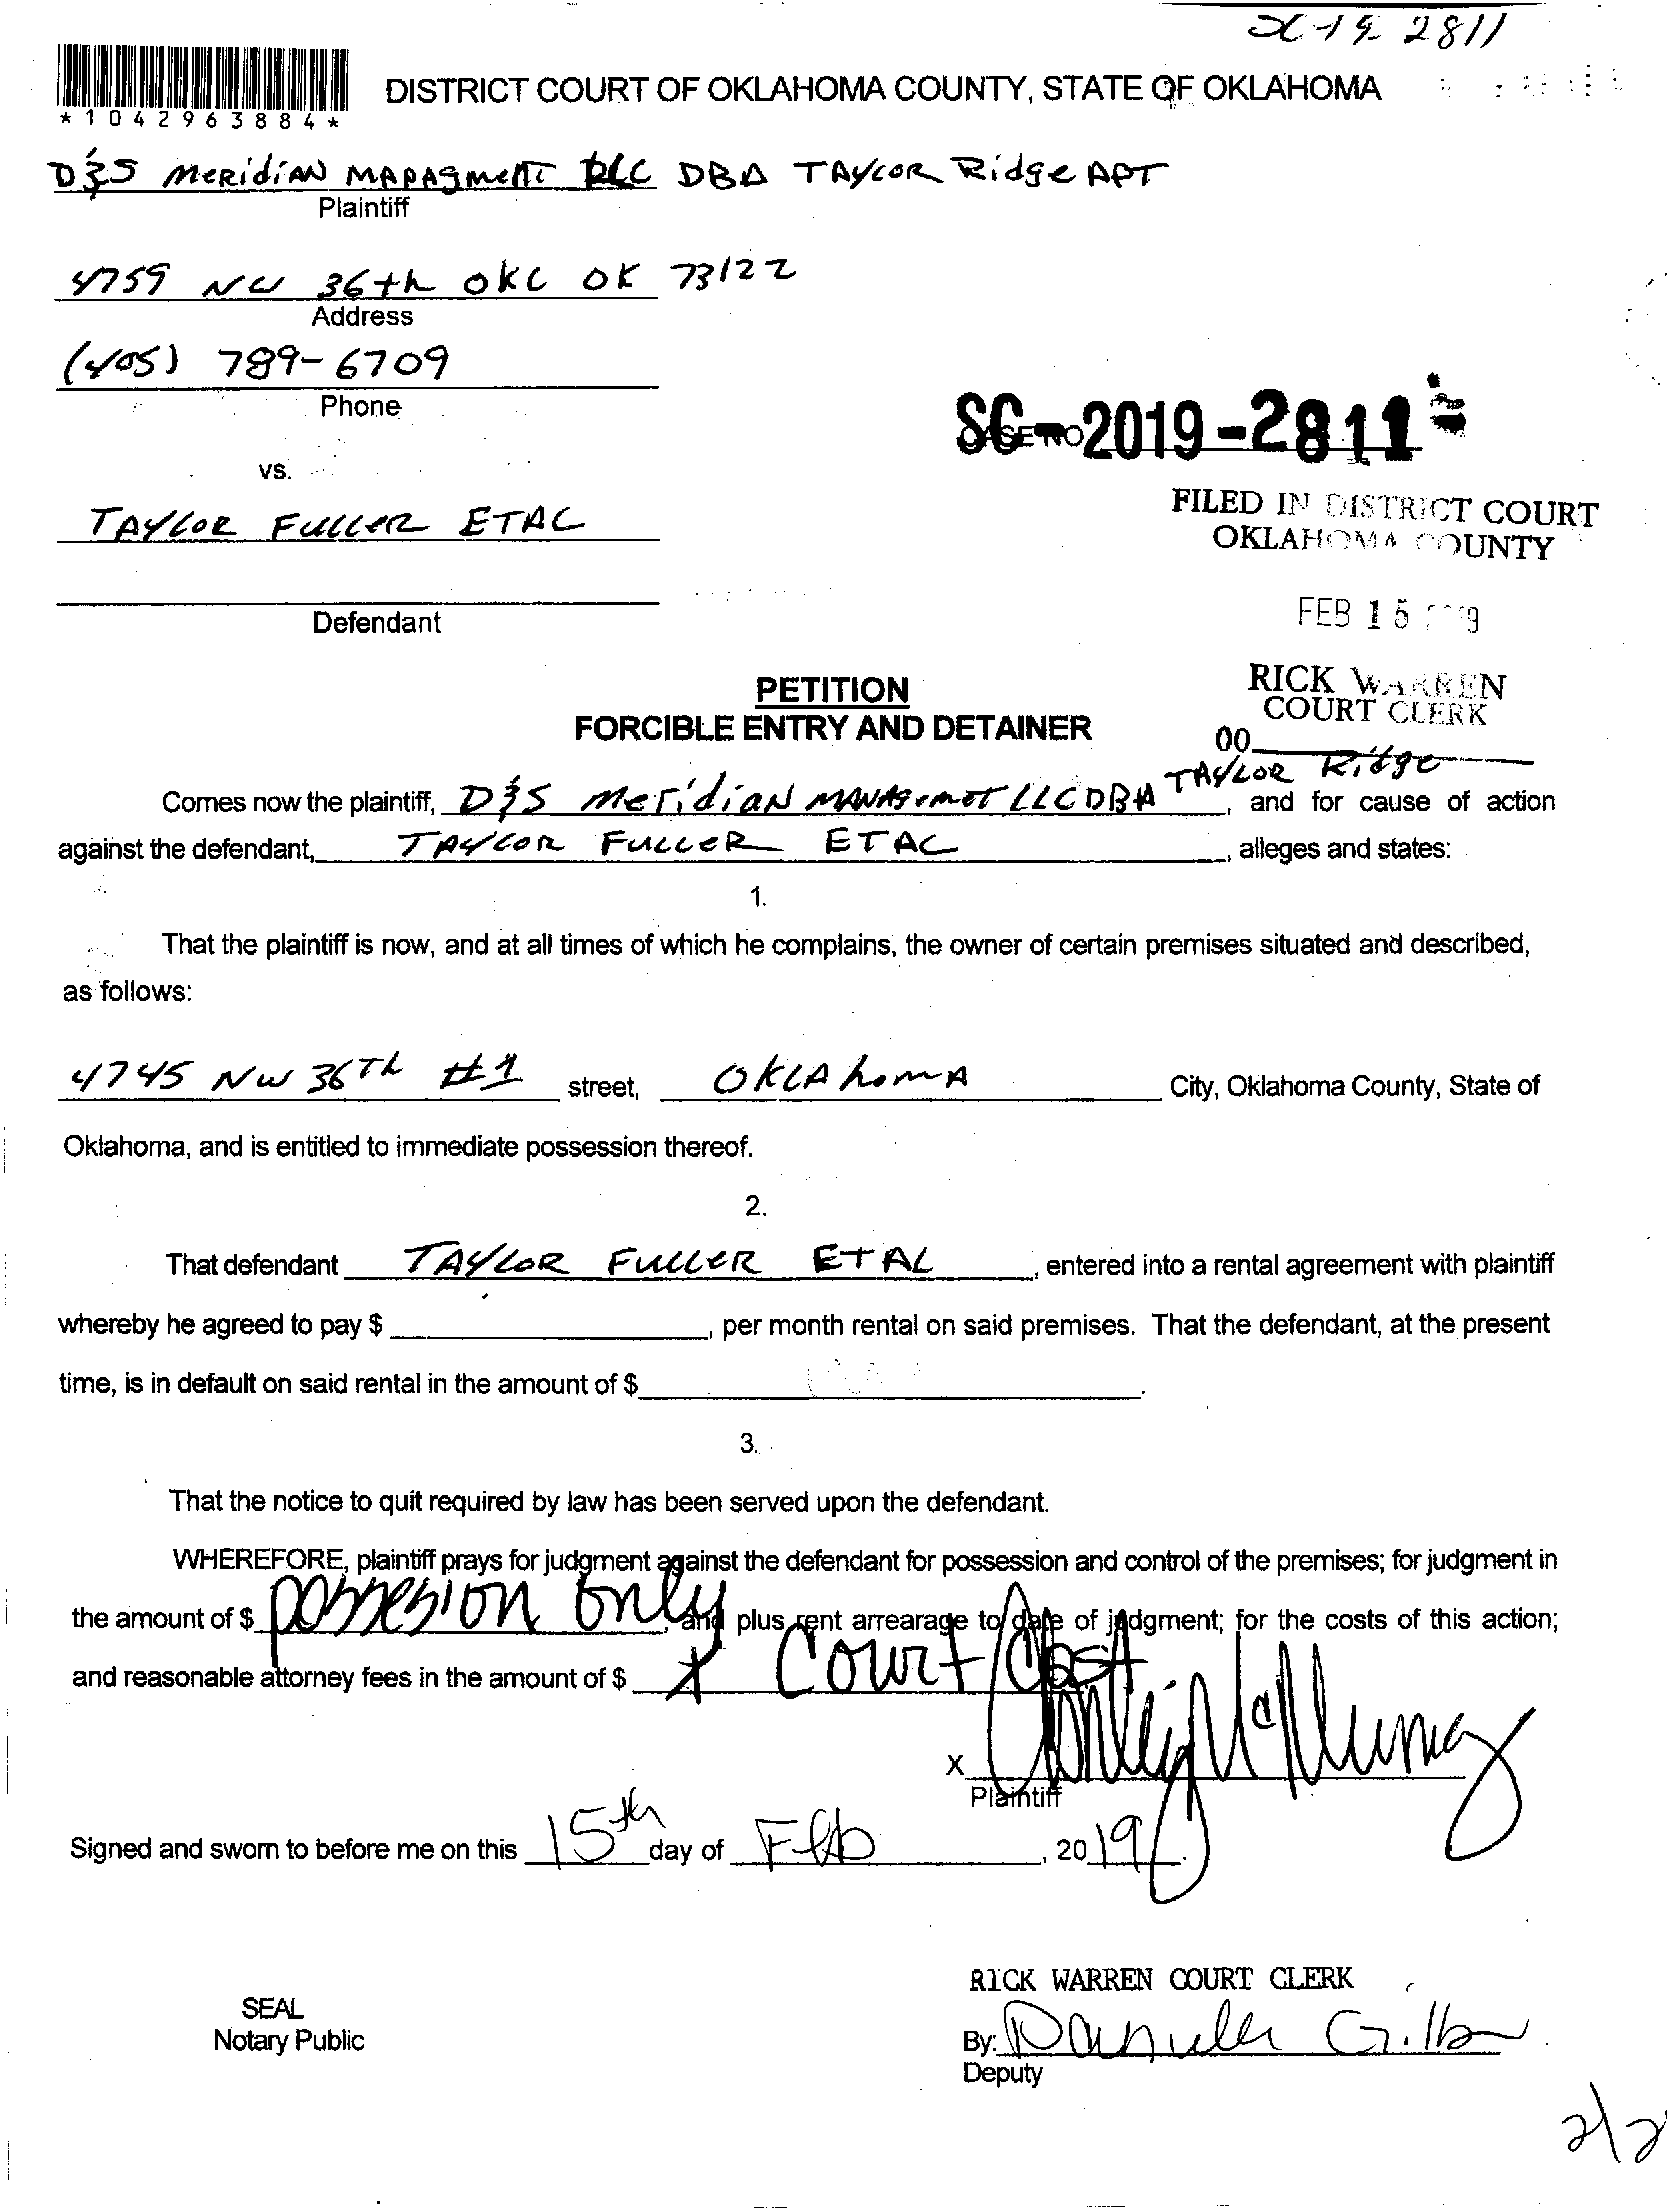 SC-19-2811
*1042963884*
DISTRICT COURT OF OKLAHOMA COUNTY, STATE OF OKLAHOMA
D&S MeRidiAN MAPAgmeNT LLC DBA TAYLOR Ridge APT
Plaintiff
4759 NW 36th OKC OK 73122
Address
(405) 789-6709
Phone
SC-2019-2811
CASE NO
vs.
TAYLOR FULLER ETAL
FILED IN DISTRICT COURT
OKLAHOMA COUNTY
Defendant
FEB 15 2019
PETITION
FORCIBLE ENTRY AND DETAINER
RICK WARREN
COURT CLERK
00
Comes now the plaintiff, D&S MeridiaN MANAgemeT LLC DBA TAYLOR Ridge, and for cause of action
against the defendant, TAYLOR FULLER ETAL, alleges and states:
1.
That the plaintiff is now, and at all times of which he complains, the owner of certain premises situated and described,
as follows:
4745 NW 36Th #1 street, OKLAhomA City, Oklahoma County, State of
Oklahoma, and is entitled to immediate possession thereof.
2.
That defendant TAYLOR FULLER ETAL, entered into a rental agreement with plaintiff
whereby he agreed to pay $, per month rental on said premises. That the defendant, at the present
time, is in default on said rental in the amount of $.
3.
That the notice to quit required by law has been served upon the defendant.
WHEREFORE, plaintiff prays for judgment against the defendant for possession and control of the premises; for judgment in
the amount of $ possesion only, and plus rent arrearage to date of judgment; for the costs of this action;
and reasonable attorney fees in the amount of $ + Court Cost
X
Plaintiff
Signed and sworn to before me on this 15th day of Feb, 2019.
RICK WARREN COURT CLERK
SEAL
Notary Public
By:
Deputy